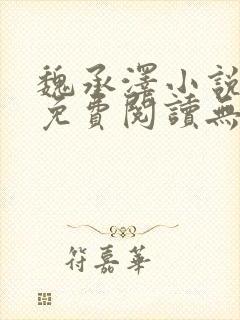 魏承澤小說
免費閱讀無
符嘉華